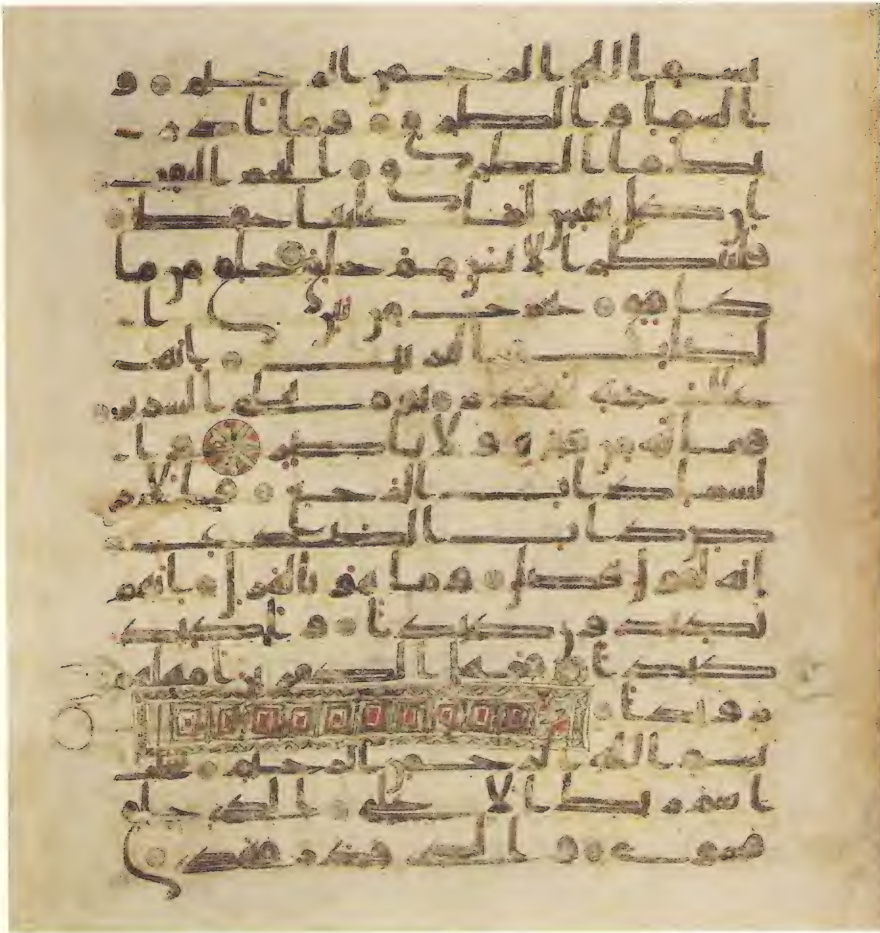 بسم الله الرحمن الرحيم و
السما والطرق وما ادر
يك ما الطرق النجم الثقب
ان كل نفس لما عليها حفظ
فلينظر الانسن مم خلق خلق من ما
دافق يخرج من بين ا
لصلب والترائب انه
على رجعه لقدر يوم تبلى السرير
فما له من قوة ولا ناصر وا
لسما ذات الرجع والارض
ذات الصدع
انه لقول فصل وما هو بالهزل انهم
يكيدون كيدا واكيد
كيدا فمهل الكفرين امهله
م رويدا
بسم الله الرحمن الرحيم سبح
اسم ربك الاعلى الذي خلق
فسوى والذي قدر فهدى